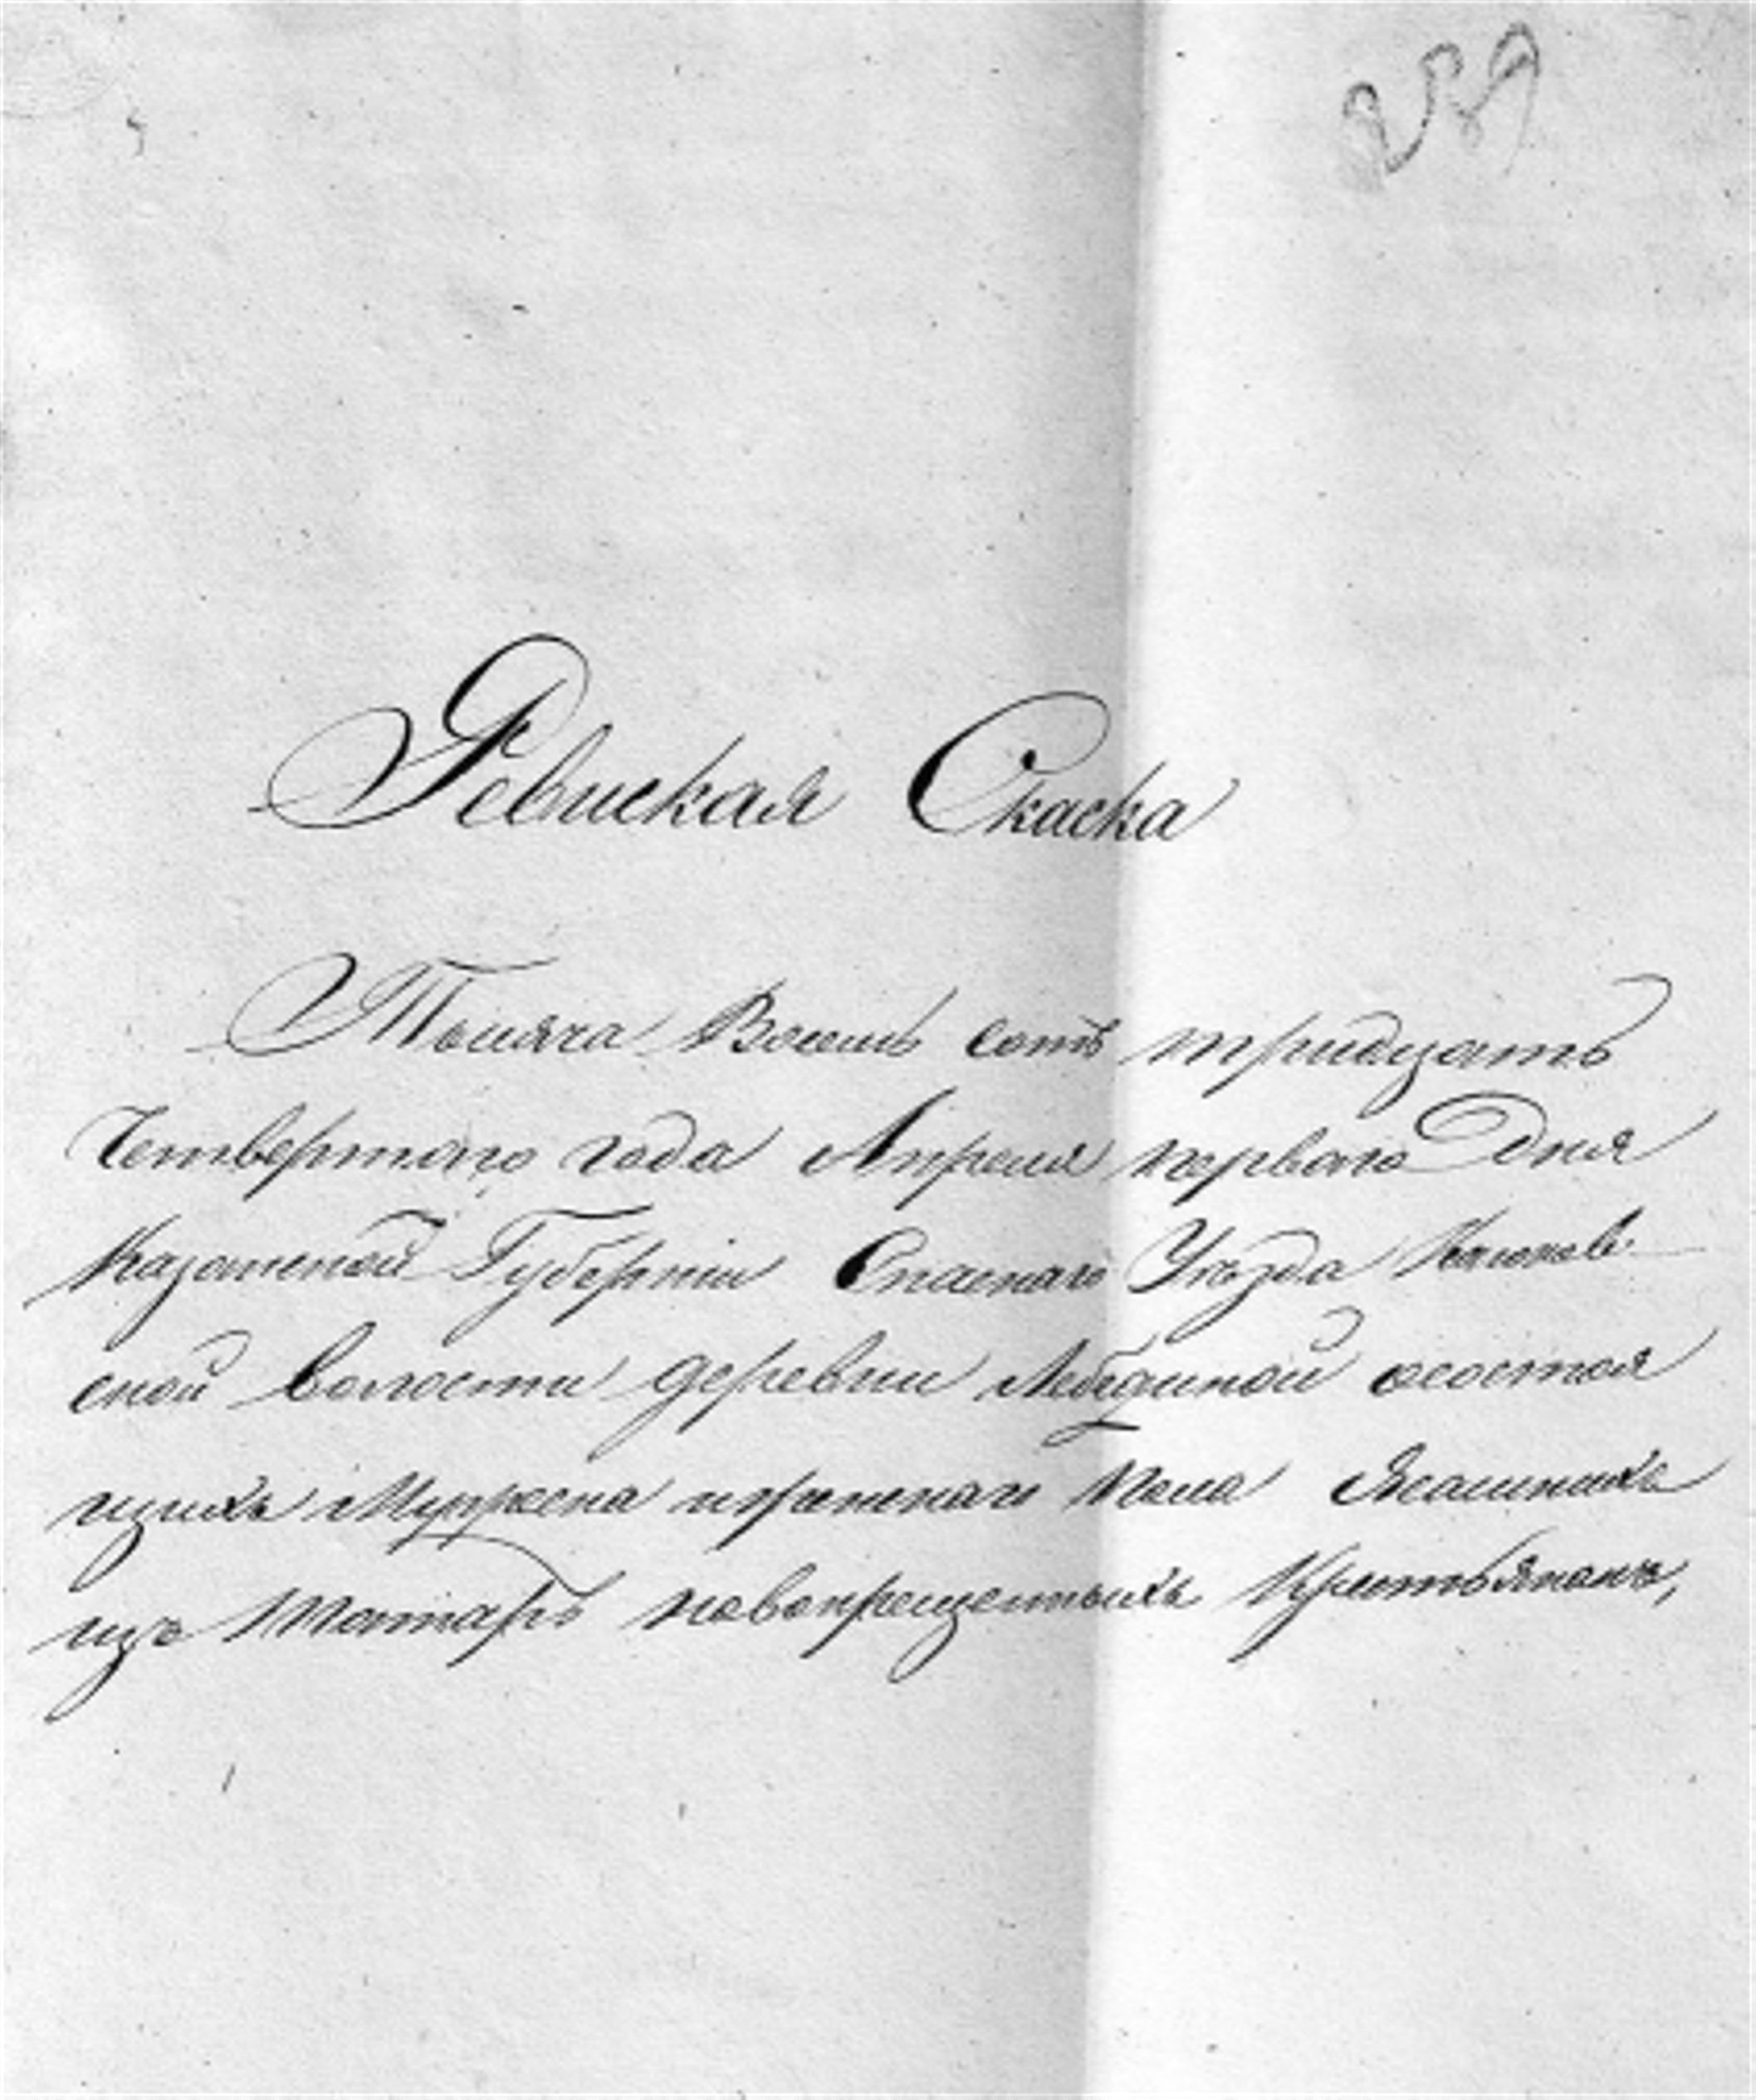 289
Ревиская Скаска
Тысяча Восемь сотъ тридцать
Четвертаго года Апреля перваго Дня
Казанской Губерніи Спаскаго Уѣзда
ской волости деревни Лебединой осостоя
щихъ Мужеска иженскаго пола Ясашныхъ
изъ Татаръ новокрещенныхъ Крестьянахъ,